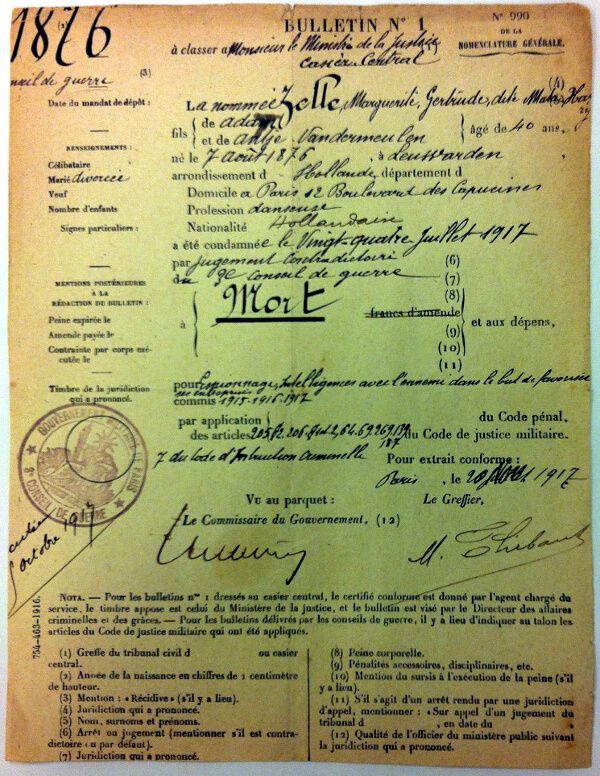 1876
BULLETIN N° 1
N° 990
DE LA
NOMENCLATURE GÉNÉRALE.
à classer à Monsieur le Ministre de la Justice
Casier Central
de guerre
(3)
(4)
Date du mandat de dépôt :
La nommée Zelle, Marguerite, Gertrude, dite Mata-Hari
de Adam
fils et de Antje Vandermeulen âgé de 40 ans,
né le 7 août 1876, à Leuwarden
RENSEIGNEMENTS :
Célibataire
arrondissement d Hollande département d
Marié divorcée
Veuf
Domicile à Paris 12 Boulevard des Capucines
Nombre d'enfants
Profession danseuse
Signes particuliers :
Nationalité Hollandaise
a été condamnée le Vingt-quatre Juillet 1917
par Jugement Contradictoire (6)
du 3e Conseil de guerre (7)
MENTIONS POSTÉRIEURES
A LA
RÉDACTION DU BULLETIN :
Peine expirée le
Amende payée le
Contrainte par corps exé-
cutée le
à Mort
(8)
francs d'amende
(9)
et aux dépens,
(10)
(11)
Timbre de la juridiction
qui a prononcé.
pour Espionnage, Intelligences avec l'ennemi dans le but de favoriser
ses entreprises
commis 1915-1916-1917
par application
du Code pénal.
des articles 205 §2, 206 64, 69, 269, 189
187
du Code de justice militaire.
7 du Code d'Instruction Criminelle
Pour extrait conforme :
GOUVERNEMENT MILITAIRE DE PARIS
3e CONSEIL DE GUERRE
Paris, le 20 1917
VU AU PARQUET :
Le Greffier,
Le Commissaire du Gouvernement, (12)
octobre 1917
M. Thibaut
NOTA. — Pour les bulletins nos 1 dressés au casier central, le certifié conforme est donné par l'agent chargé du
service, le timbre apposé est celui du Ministère de la justice, et le bulletin est visé par le Directeur des affaires
criminelles et des grâces. — Pour les bulletins délivrés par les conseils de guerre, il y a lieu d'indiquer au talon les
articles du Code de justice militaire qui ont été appliqués.
754-463-1916.
(1) Greffe du tribunal civil d ou casier
central.
(2) Année de la naissance en chiffres de 1 centimètre
de hauteur.
(3) Mention : « Récidive » (s'il y a lieu).
(4) Juridiction qui a prononcé.
(5) Nom, surnoms et prénoms.
(6) Arrêt ou jugement (mentionner s'il est contra-
dictoire ou par défaut).
(7) Juridiction qui a prononcé.
(8) Peine corporelle.
(9) Pénalités accessoires, disciplinaires, etc.
(10) Mention du sursis à l'exécution de la peine (s'il
y a lieu).
(11) S'il s'agit d'un arrêt rendu par une juridiction
d'appel, mentionner : « Sur appel d'un jugement du
tribunal d , en date du ».
(12) Qualité de l'officier du ministère public suivant
la juridiction qui a prononcé.